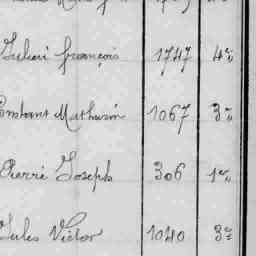 Julien François 1747 4e
Constant Mathurin 1067 3e
Pierre Joseph 306 1re
Jules Victor 1040 3e